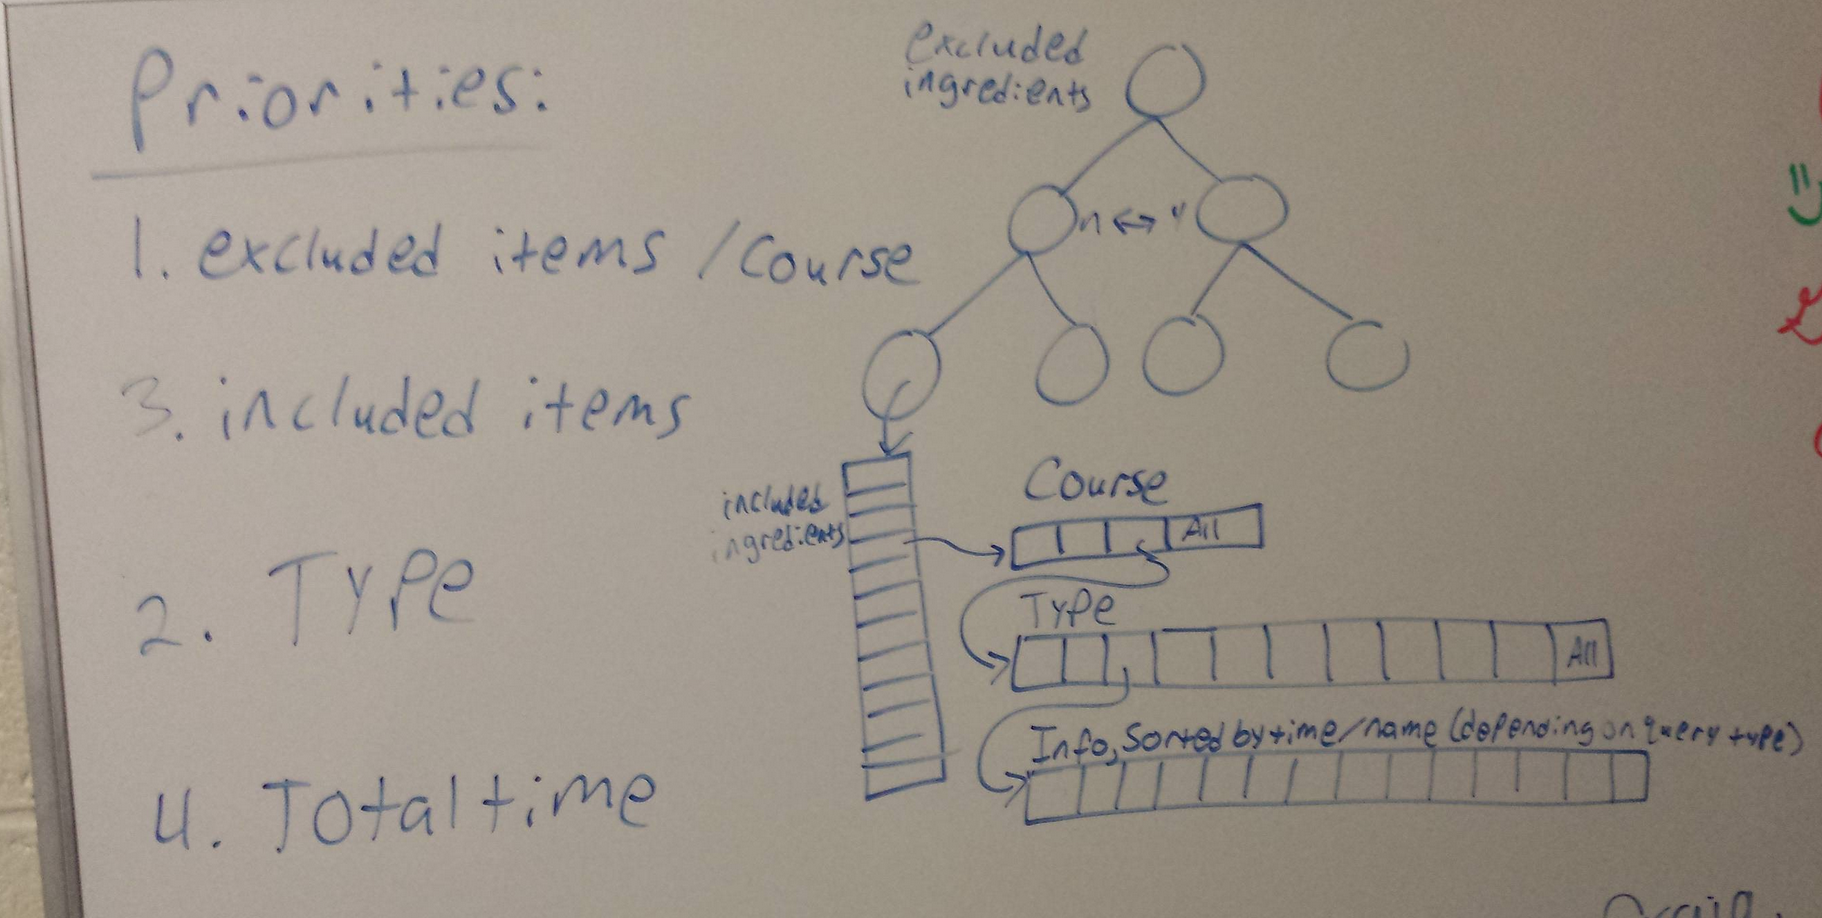 Priorities:
1. excluded items / Course
3. included items
2. Type
4. Total time
excluded
ingredients
included
ingredients
Course
All
Type
All
Info, Sorted by time/name (depending on query type)